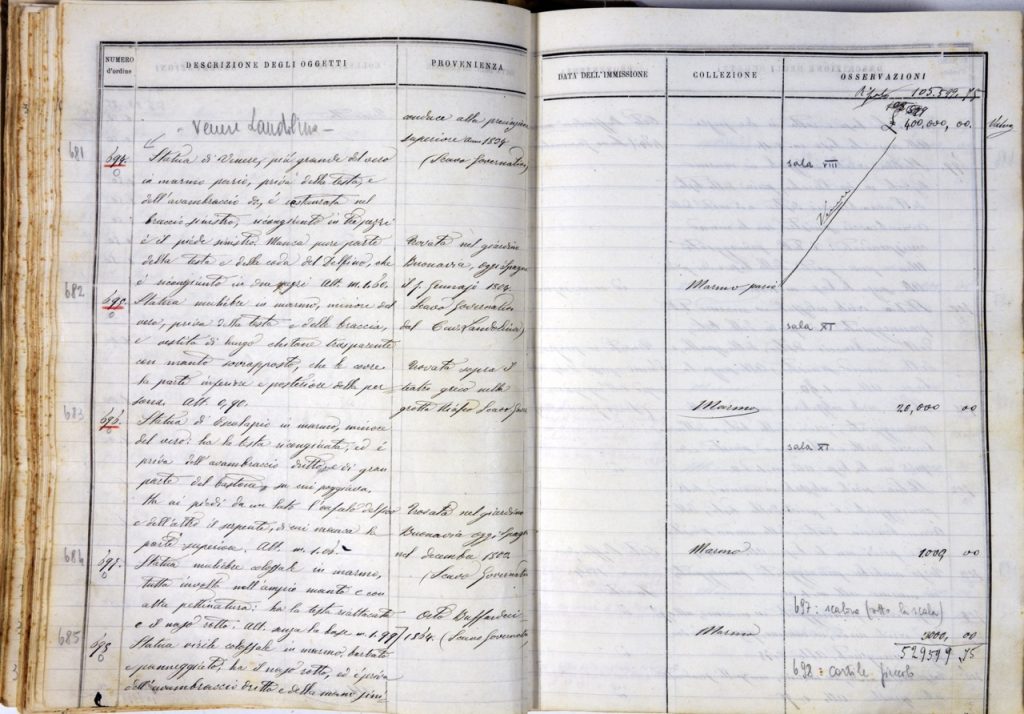 NUMERO
d'ordine
DESCRIZIONE DEGLI OGGETTI
PROVENIENZA
DATA DELL'IMMISSIONE
COLLEZIONE
OSSERVAZIONI
105.599,75
Venere Landolina
superiore
681
694.
Statua di Venere, più grande del vero
in marmo pario, priva della testa, e
dell'avambraccio do, è restaurata nel
braccio sinistro, ricongiunto in tre pezzi
è il piede sinistro. Manca pure parte
della testa e della coda del Delfino, che
è ricongiunto in due pezzi. Alt. m. 1.60.
(Scavo Governativo)
Trovata nel giardino
Buonavia, oggi Spagna
il 7 Gennajo 1804.
Scavo Governativo
dal Cav. Landolina)
Marmo pario
Venere
sala VIII
400,000, 00.
682
695.
Statua muliebre in marmo, minore del
vero, priva della testa e delle braccia,
e vestita di lungo chitone trasparente
con manto sovrapposto, che le covre
la parte inferiore e posteriore della per
sona. Alt. 0,90.
Trovata sopra il
teatro greco nella
Marmo
sala XI
20,000 00
683
696.
Statua di Esculapio in marmo, minore
del vero: ha la testa ricongiunta, ed è
priva dell'avambraccio dritto, e di gran
parte del bastone, su cui poggiava.
e dell'altro il serpente, di cui manca la
parte superiore. Alt. m. 1.06.
Trovata nel giardino
Buonavia oggi Spagna
nel decembre 1803
(Scavo Governativo
Marmo
sala XI
1000 00
684
697.
Statua muliebre colossale in marmo,
tutta involta nell'ampio manto e con
alta pettinatura: ha la testa riattaccata
e il naso rotto. Alt. senza la base m. 1.97
1864. (Scavo Governativo
Marmo
697: scalone (sotto la scala)
3000, 00
529599 75
685
698
Statua virile colossale in marmo, barbata
e panneggiata, ha il naso rotto, ed è priva
dell'avambraccio dritto e della mano sini
698: cortile piccolo